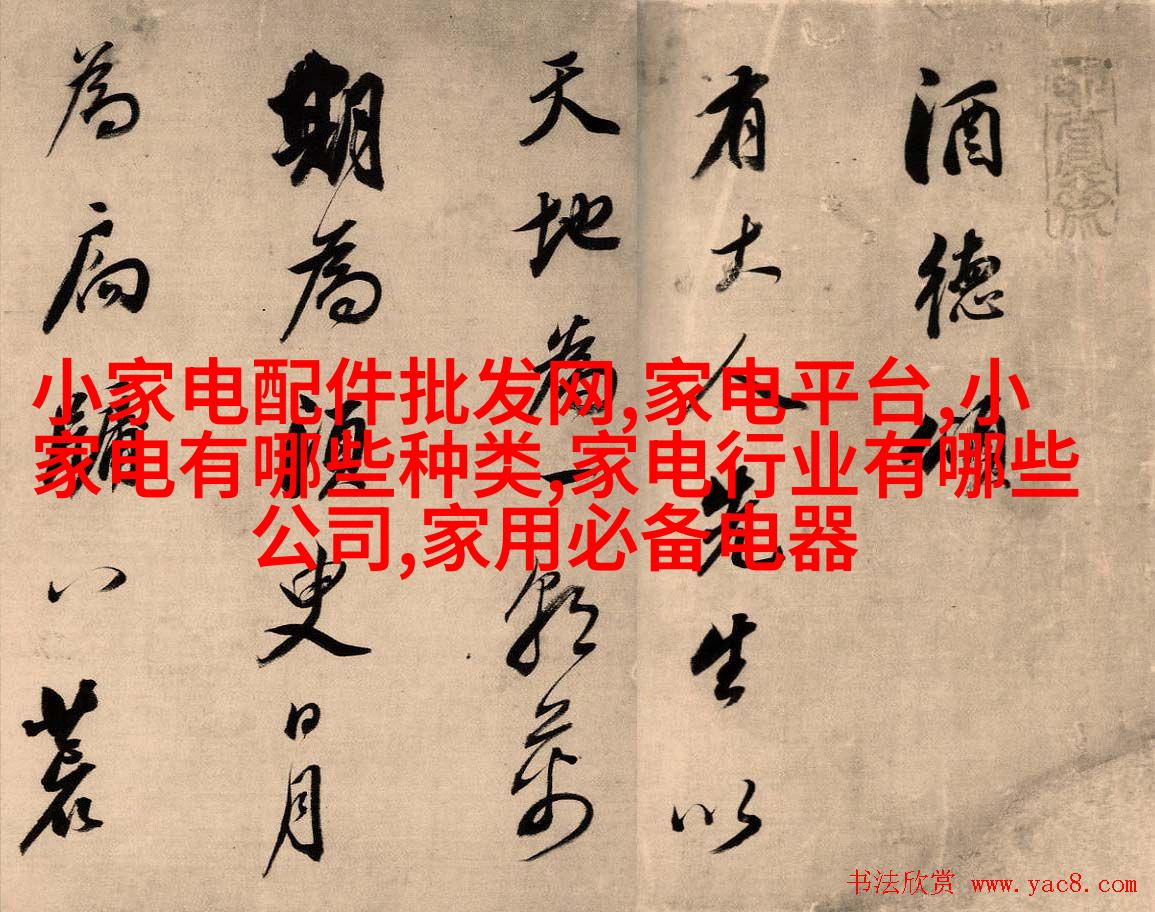 酒德頌
有大人先生以
天地為一朝萬
期為須臾日月
為扃牖八荒
小家电配件批发网,家电平台,小
家电有哪些种类,家电行业有哪些
公司,家用必备电器
书法欣赏 www.yac8.com